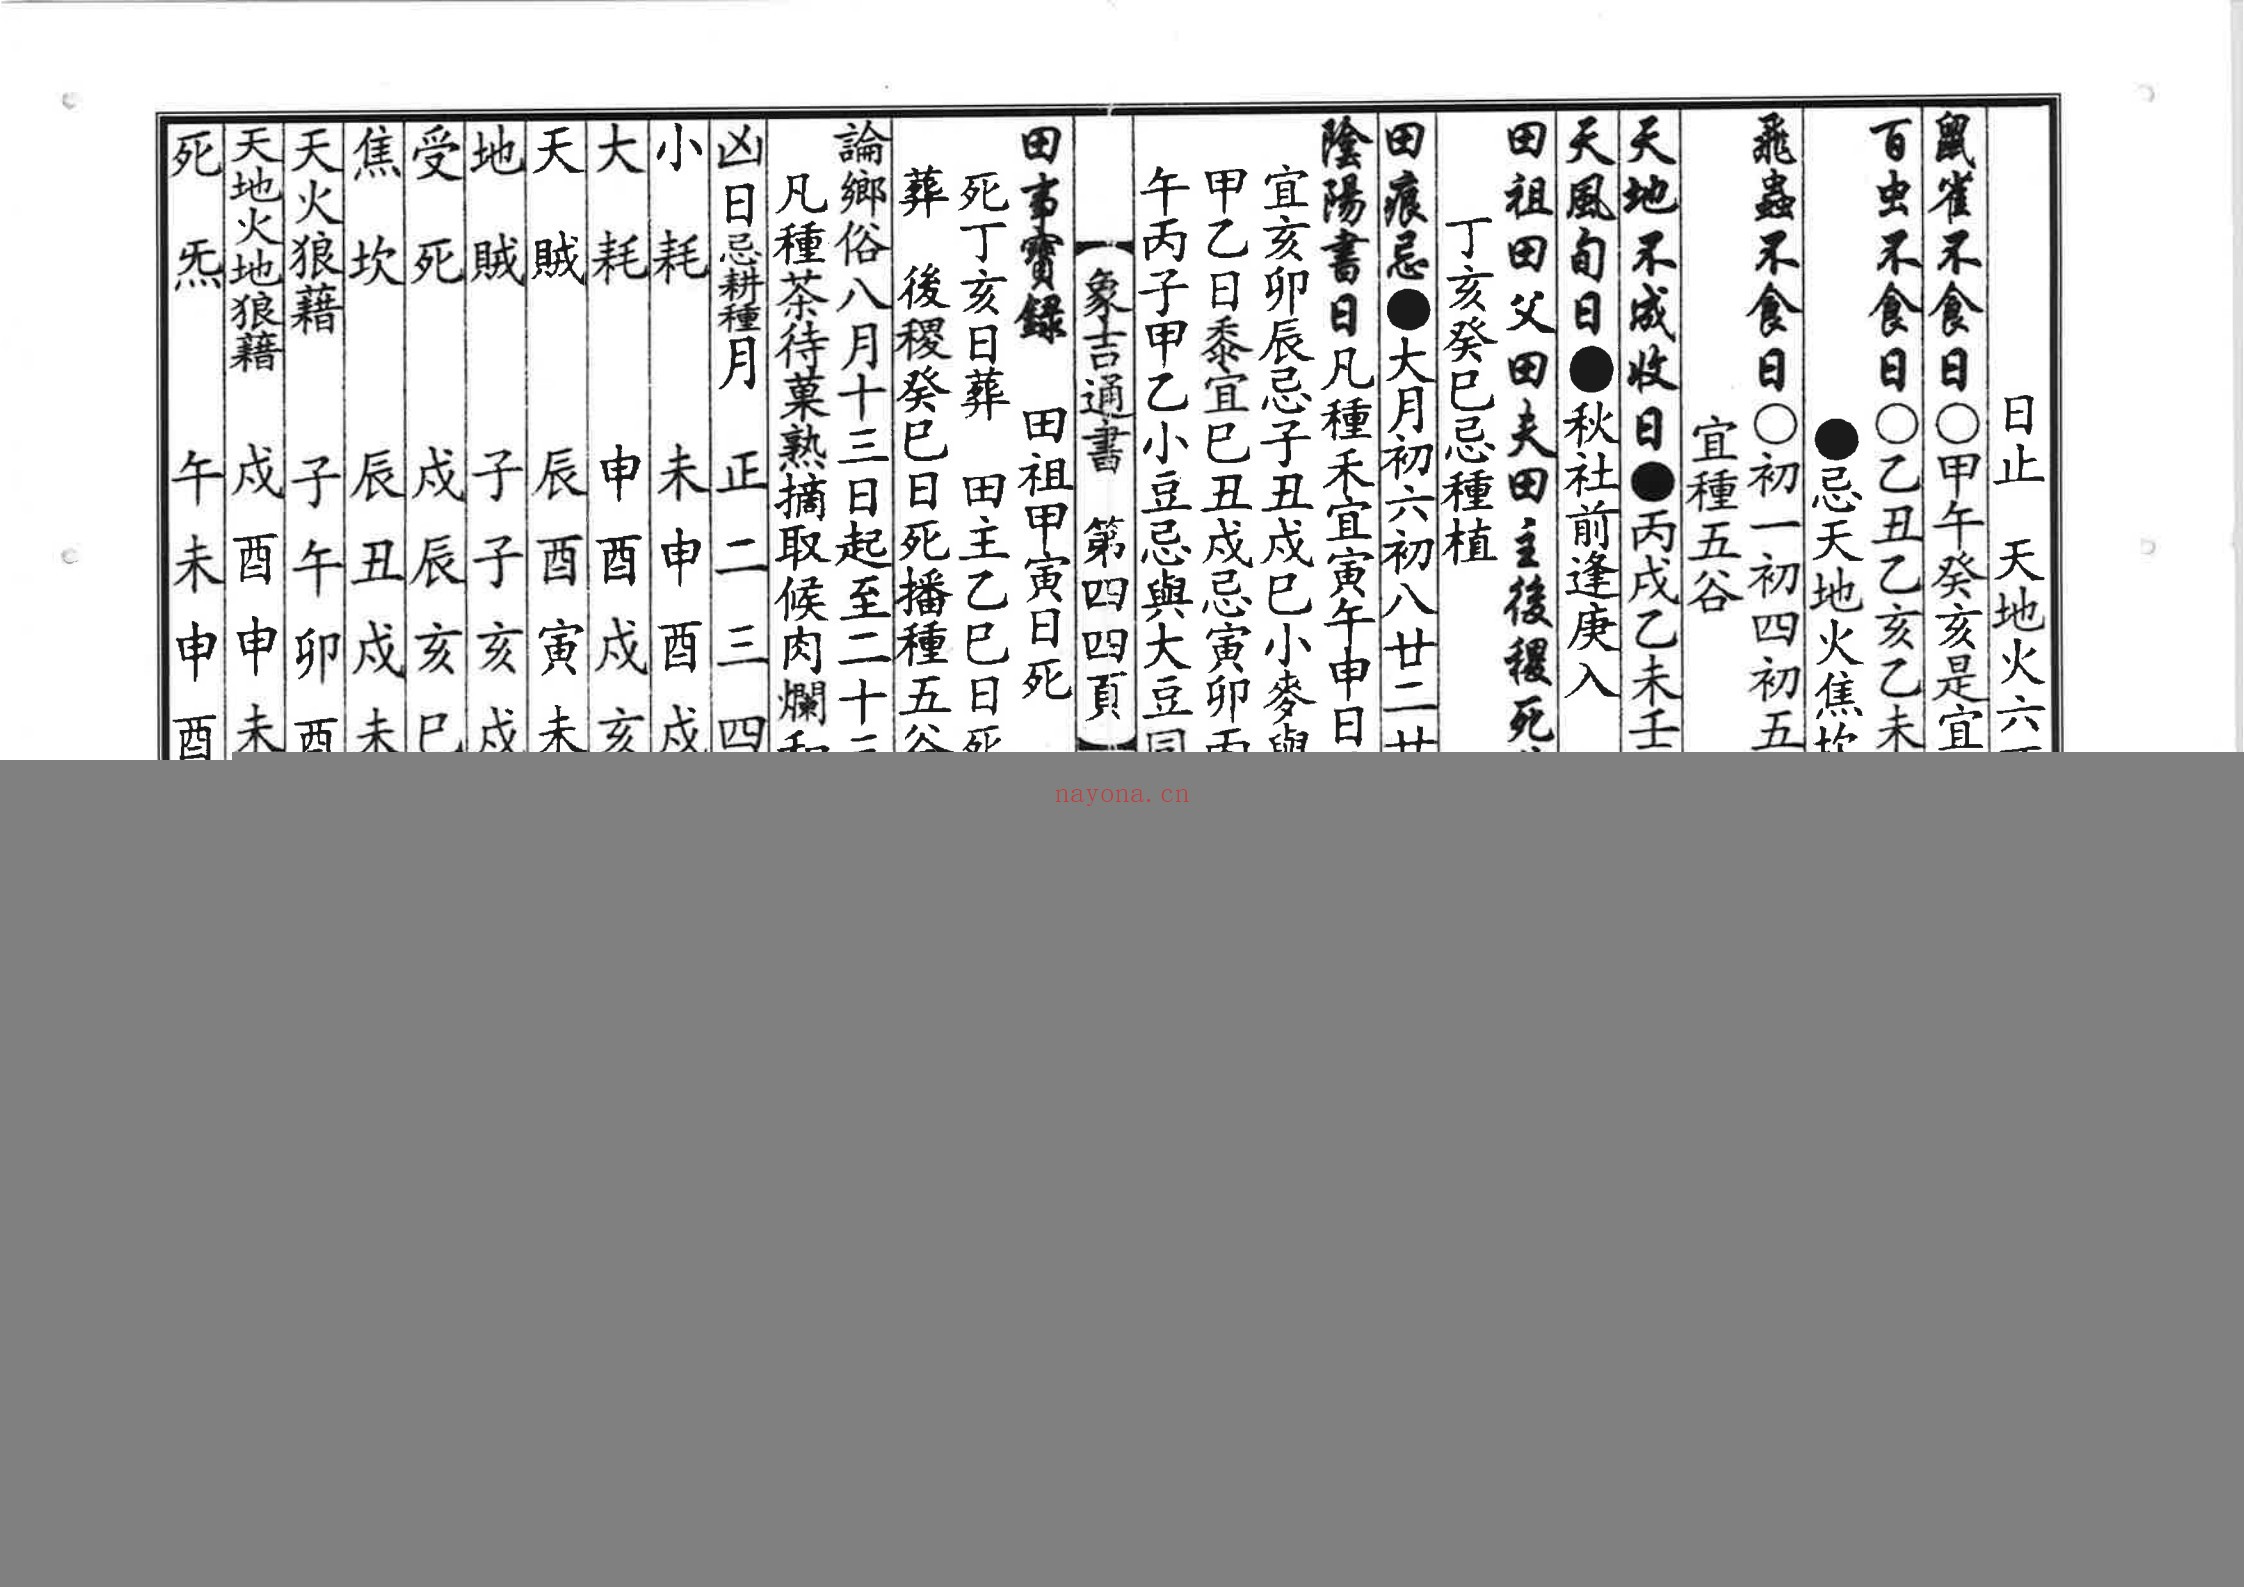 日止　天地火六
鼠雀不食日○甲午癸亥是宜
百虫不食日○乙丑乙亥乙未
●忌天地火焦坎
飛蟲不食日○初一初四初五
宜種五谷
天地不成收日●丙戌乙未壬
天風旬日●秋社前逢庚入
田祖田父田夫田主後稷死
丁亥癸巳忌種植
田痕忌●大月初六初八廿二廿
陰陽書日凡種禾宜寅午申日
宜亥卯辰忌子丑戌巳小麥與
甲乙日黍宜巳丑戌忌寅卯丙
午丙子甲乙小豆忌與大豆同
象吉通書　第四四頁
田事寶録　田祖甲寅日死
死丁亥日葬　田主乙巳日死
葬　後稷癸巳日死播種五谷
論鄉俗八月十三日起至二十
凡種茶待菓熟摘取候肉爛和
凶日忌耕種月　正二三四
小耗　未申酉戌
大耗　申酉戌亥
天賊　辰酉寅未
地賊　子子亥戌
受死　戌辰亥巳
焦坎　辰丑戌未
天火狼藉　子午卯酉
天地火地狼藉　戌酉申未
死炁　午未申酉
nayona.cn